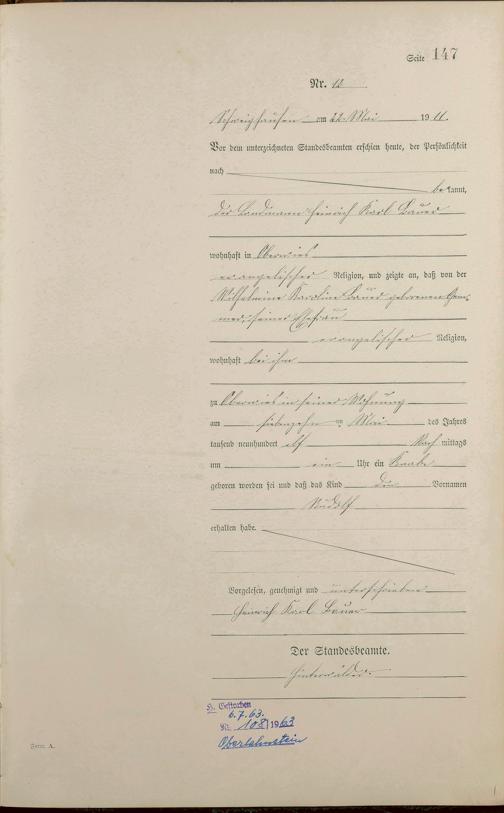 Seite 147
Nr. 12
Schweighausen am 22. Mai 1911.
Vor dem unterzeichneten Standesbeamten erschien heute, der Persönlichkeit
nach
bekannt,
der Landmann Heinrich Karl Bauer
wohnhaft in Oberwies
evangelischer Religion, und zeigte an, daß von der
Wilhelmine Karoline Bauer geborenen
seiner Ehefrau
evangelischer Religion,
wohnhaft bei ihm
zu Oberwies in seiner Wohnung
am siebenzehn ten Mai des Jahres
tausend neunhundert elf Nach mittags
um ein Uhr ein Knabe
geboren worden sei und daß das Kind den Vornamen
Rudolf
erhalten habe.
Vorgelesen, genehmigt und unterschrieben
Heinrich Karl Bauer
Der Standesbeamte.
Hinterwälder.
H. Gestorben
6.7.63.
Nr. 108/1963
Oberlahnstein
Form. A.